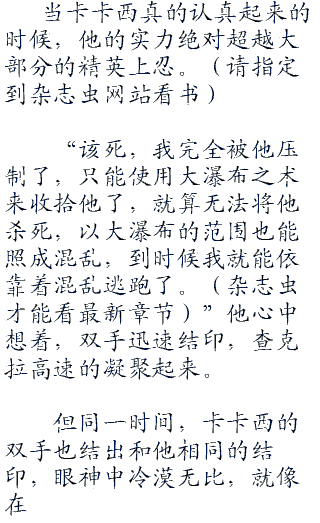 当卡卡西真的认真起来的
时候，他的实力绝对超越大
部分的精英上忍。（请指定
到杂志虫网站看书）
“该死，我完全被他压
制了，只能使用大瀑布之术
来收拾他了，就算无法将他
杀死，以大瀑布的范围也能
照成混乱，到时候我就能依
靠着混乱逃跑了。（杂志虫
才能看最新章节）”他心中
想着，双手迅速结印，查克
拉高速的凝聚起来。
但同一时间，卡卡西的
双手也结出和他相同的结
印，眼神中冷漠无比，就像
在